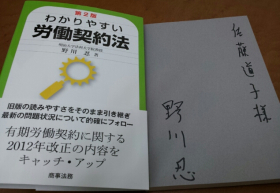 第2版
わかりやすい
労働契約法
野川 忍 著
旧版の読みやすさをそのまま引き継ぎ
最新の問題状況について的確にフォロー
有期労働契約に関する
2012年改正の内容を
キャッチ・アップ
商事法務
佐藤道子様
野川忍